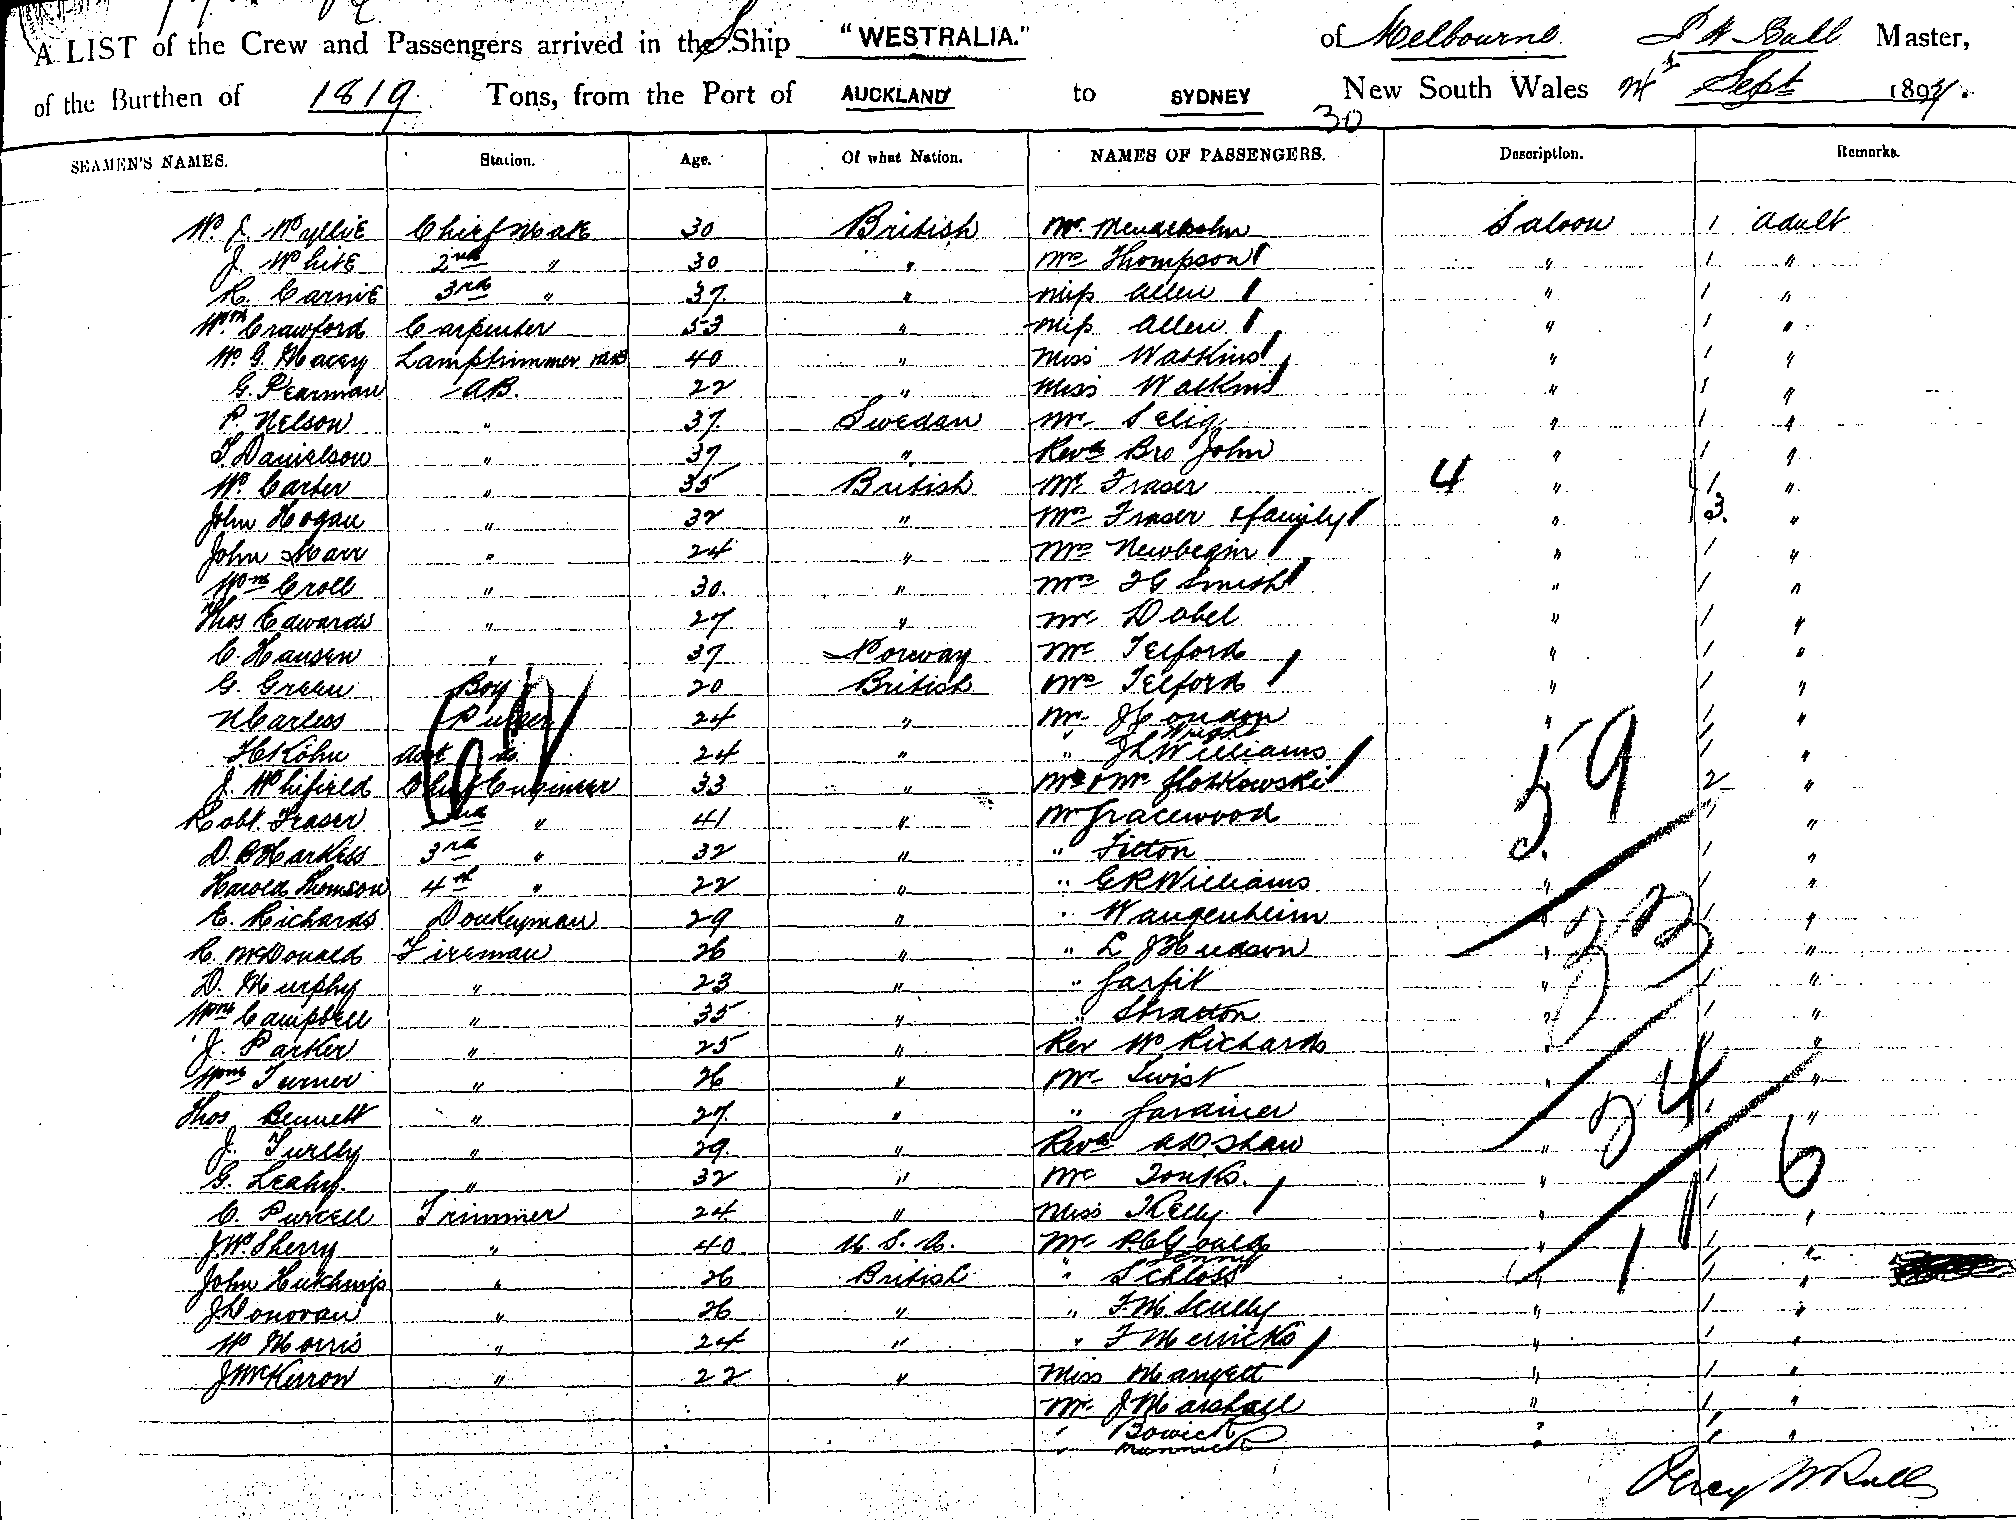 A LIST of the Crew and Passengers arrived in the S Ship "WESTRALIA." of Melbourne P W Bull Master,
of the Burthen of 1819 Tons, from the Port of AUCKLAND to SYDNEY New South Wales Sept 189
30
SEAMEN'S NAMES. Station. Age. Of what Nation. NAMES OF PASSENGERS. Description. Remarks.
W. J. Wyllie Chief Mate 30 British Mr. Mendelsohn Saloon 1 adult
J. White 2nd " 30 " Mrs Thompson " 1 "
R. Carnie 3rd " 37 " Miss Allen " 1 "
Wm Crawford Carpenter 53 " Miss Allen " 1 "
W. G. Macey Lamptrimmer 40 " Miss Watkins " 1 "
G. Pearman AB. 22 " Miss Watkins " 1 "
P. Nelson " 37 Swedan Mr. Selig " 1 "
Danielson " 37 " Revd Bro John " 1 "
W. Carter " 35 British Mr Fraser 4 " 1 "
John Hogan " 32 " Mrs Fraser & family " 3. "
John Marr " 24 " Mrs Newbegin " 1 "
Wm Croll " 30. " Mrs Smith " 1 "
Thos Edwards " 27 " Mr Dobel " 1 "
C. Hansen " 37 Norway Mr Telford " 1 "
G. Green Boy 20 British Mrs Telford " 1 "
N Carless Purser 24 " Mr. J Condon " 1 "
H Kohn Asst do. 24 " " Wright Williams 59 1 "
J. Whifield Chief Engineer 33 " Mrs & Mr 2 "
Robt. Fraser 2nd " 41 " Mr Gracewood 1 "
D. B Harkess 3rd " 32 " " Fitton d. 1 "
Harold Thomson 4th " 22 " " G R Williams " 1 "
E. Richards Donkeyman 29 " " Wangenheim " 33 1 "
R. McDonald Fireman 26 " " L J Hudson " 1 "
D. Murphy " 23 " " Garfit " 1 "
Wm Campbell " 35 " " Stratton " 1 "
J. Parker " 25 " Rev W Richards " "
Wm Turner " 26 " Mr Twist " 24 "
Thos Bennett " 27 " " Gardiner 1 "
J. Turlly " 29. " Revd Shaw " 1 "
G. Leahy. " 32 " Mr Tonks. " 1 6
C. Purcell Trimmer 24 " Miss Kelly " 1 "
J. W. Sherry " 40 U. S. A. Mr. Gould " 1 1 "
John Hutchings " 26 British " Schloss " 1 "
J Donovan " 26 " " Scully " 1 "
W Morris " 24 " " F Merricks " 1 "
J McKerron " 22 " Miss " 1 "
Mr. J Marshall " 1 "
" Bowick " 1 "
Percy W Bull